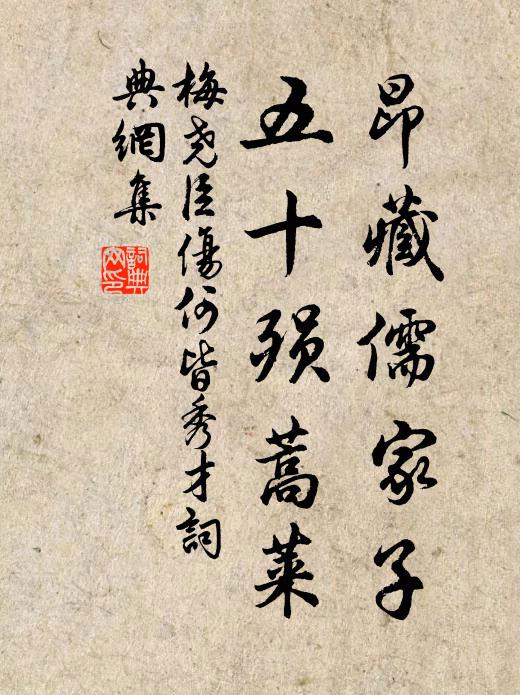 昂藏儒家子
五十殞蒿萊
梅堯臣傷何皆秀才詞
典網集
詞典網印